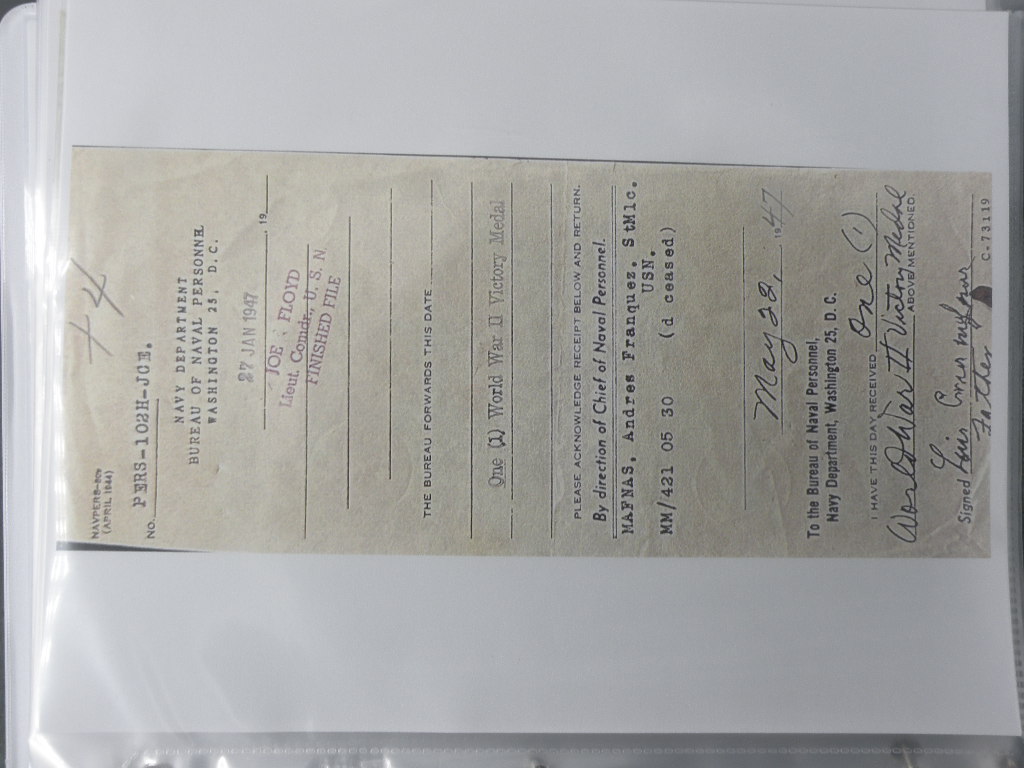 +4
NAVPERS-
(APRIL 1944)
NO. PERS-102H-JCE.
NAVY DEPARTMENT
BUREAU OF NAVAL PERSONNE
WASHINGTON 25, D. C.
27 JAN 1947 , 19
JOE FLOYD
Lieut. Comdr., U. S. N
FINISHED FILE
THE BUREAU FORWARDS THIS DATE
One (1) World War II Victory Medal
PLEASE ACKNOWLEDGE RECEIPT BELOW AND RETURN.
By direction of Chief of Naval Personnel.
MAFNAS, Andres Franquez. StM1c.
USN.
MM/421 05 30 (d ceased)
May 22, 1947
To the Bureau of Naval Personnel,
Navy Department, Washington 25, D. C.
I HAVE THIS DAY RECEIVED One (1)
World War II Victory Medal
ABOVE MENTIONED
Signed Luis
Father
C-73119